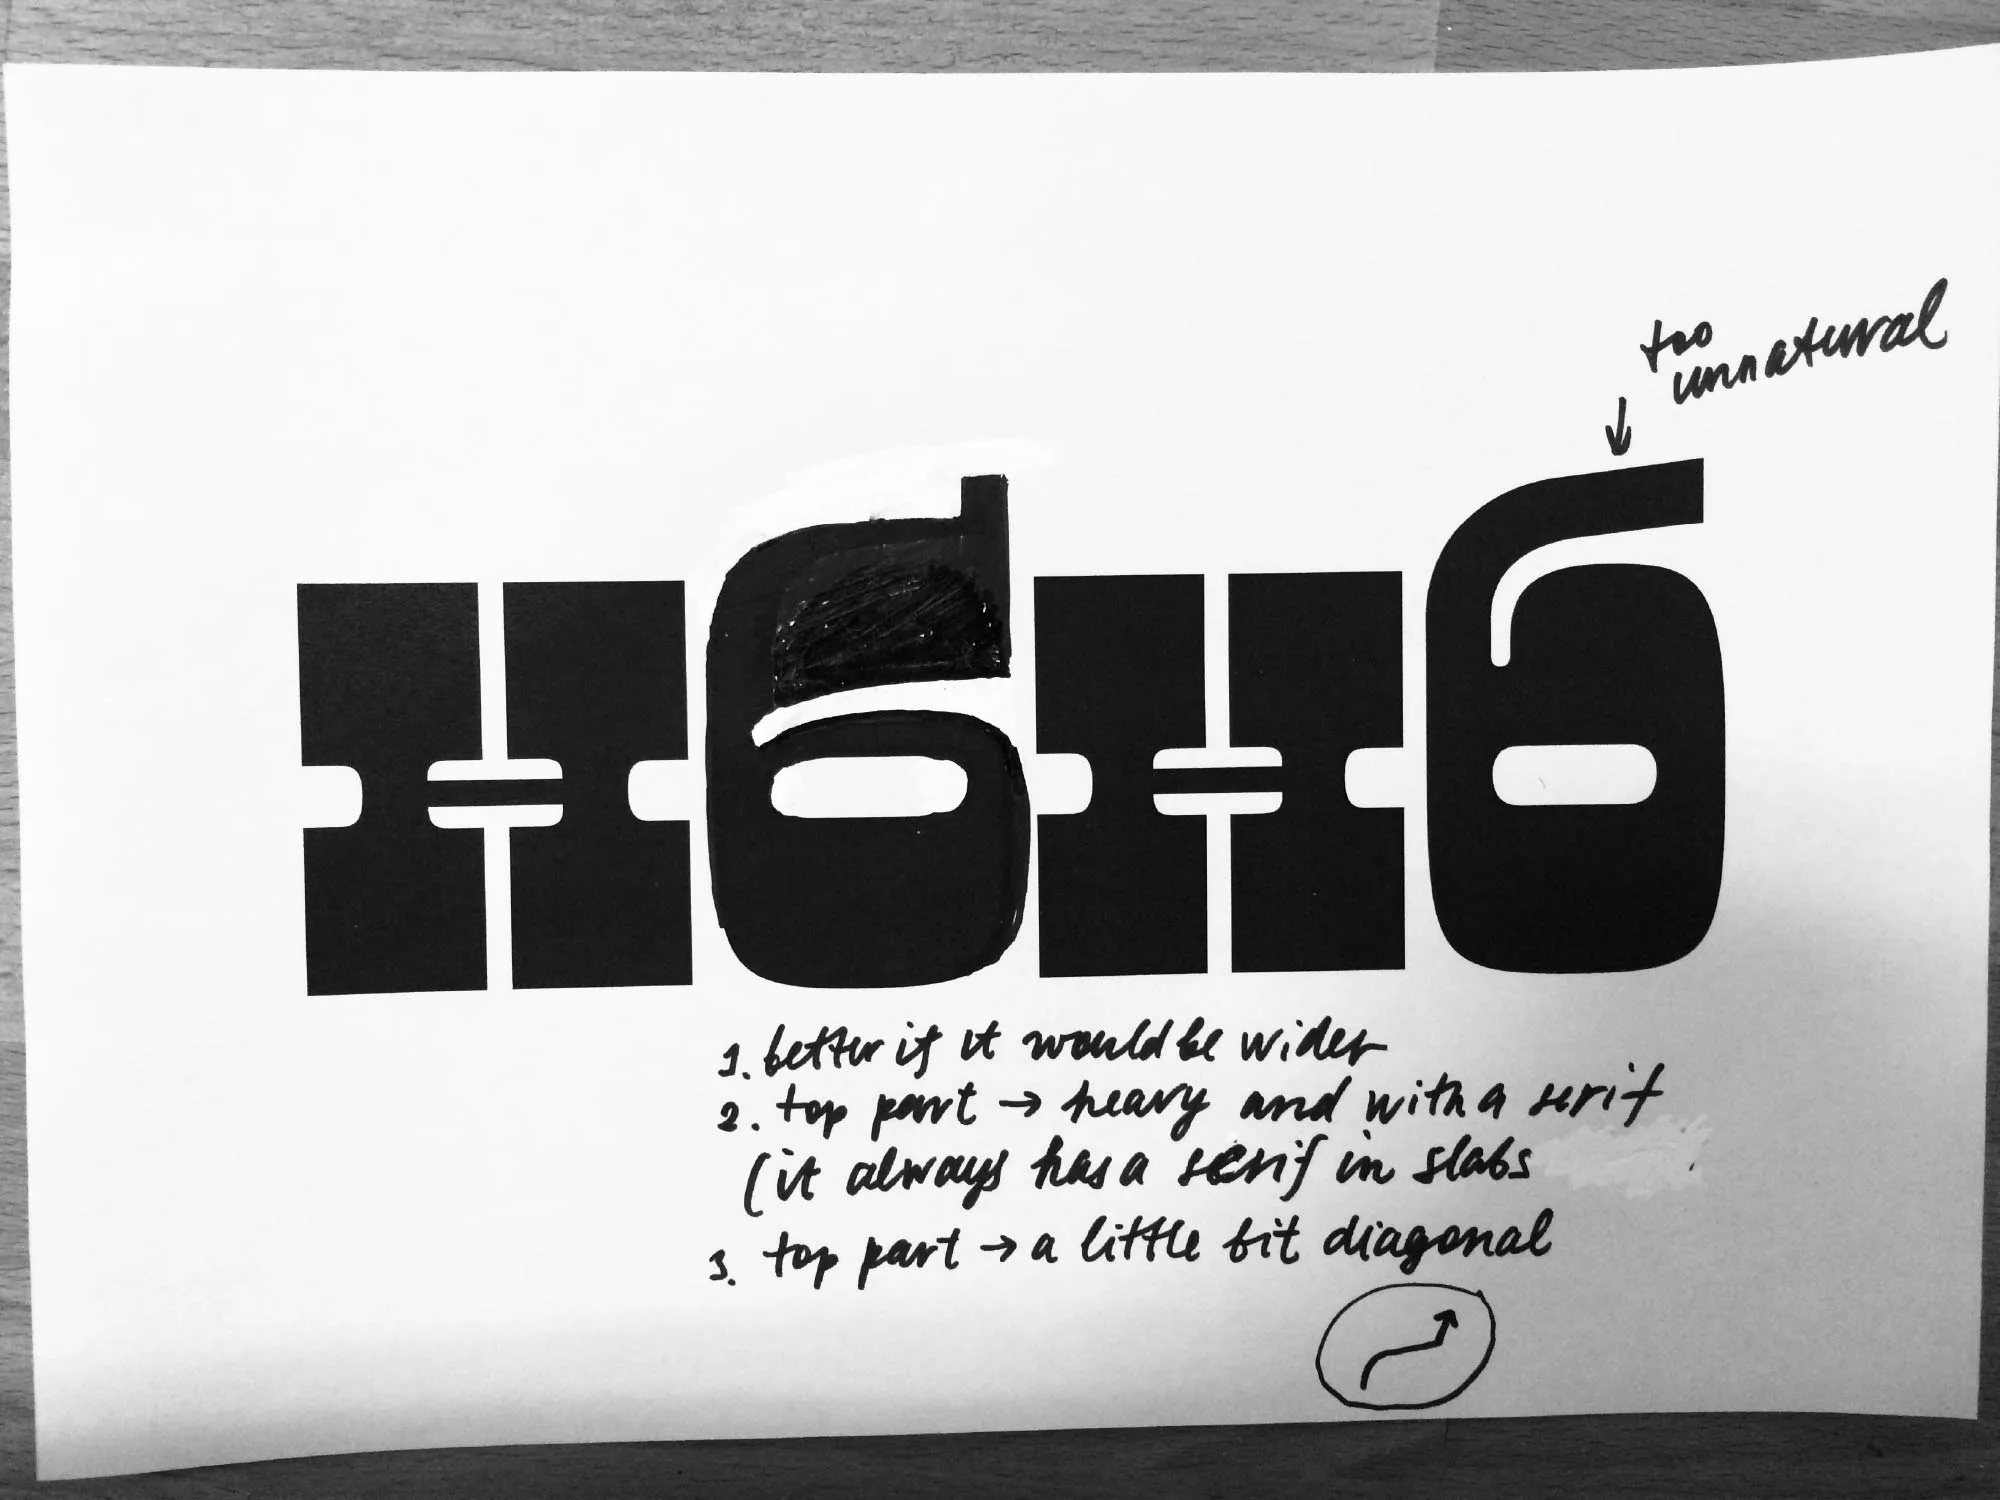 too
unnatural
↓
нбнб
1. better if it would be wider
2. top part → heavy and with a serif
(it always has a serif in slabs
3. top part → a little bit diagonal